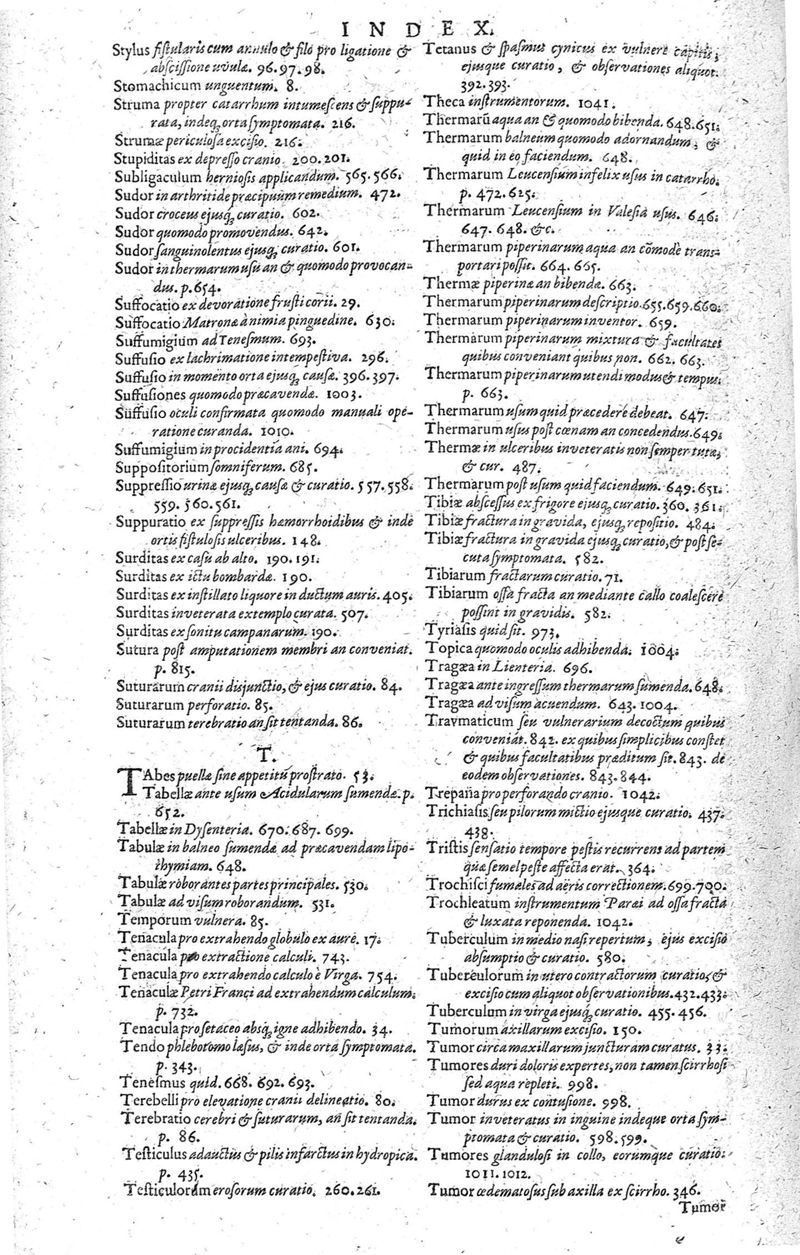 INDEX.
Stylus fistularis cum annulo & filo pro ligatione &
abscissione uvulæ. 96.97.98.
Stomachicum unguentum. 8.
Struma propter catarrhum intumescens & suppu-
rata, indeq; orta symptomata. 216.
Strumæ periculosa excisio. 216.
Stupiditas ex depresso cranio. 200.201.
Subligaculum herniosis applicandum. 565.566.
Sudor in arthritide præcipuum remedium. 472.
Sudor croceus ejusq; curatio. 602.
Sudor quomodo promovendus. 642.
Sudor sanguinolentus ejusq; curatio. 601.
Sudor in thermarum usu an & quomodo provocan-
dus. p.654.
Suffocatio ex devoratione frusti corii. 29.
Suffocatio Matronæ à nimia pinguedine. 630.
Suffumigium ad Tenesmum. 693.
Suffusio ex lachrimatione intempestiva. 296.
Suffusio in momento orta ejusq; causæ. 396.397.
Suffusiones quomodo præcavendæ. 1003.
Suffusio oculi confirmata quomodo manuali ope-
ratione curanda. 1010.
Suffumigium in procidentia ani. 694.
Suppositorium somniferum. 685.
Suppressio urinæ ejusq; causa & curatio. 557.558.
559. 560.561.
Suppuratio ex suppressis hæmorrhoidibus & inde
ortis fistulosis ulceribus. 148.
Surditas ex casu ab alto. 190.191.
Surditas ex ictu bombardæ. 190.
Surditas ex instillato liquore in ductum auris. 405.
Surditas inveterata extemplo curata. 507.
Surditas ex sonitu campanarum. 190.
Sutura post amputationem membri an conveniat.
p. 815.
Suturarum cranii disjunctio, & ejus curatio. 84.
Suturarum perforatio. 85.
Suturarum terebratio an sit tentanda. 86.
T.
TAbes puellæ sine appetitu prostrato. 53.
Tabellæ ante usum Acidularum sumendæ. p.
652.
Tabellæ in Dysenteria. 670.687. 699.
Tabulæ in balneo sumendæ ad præcavendam lipo-
thymiam. 648.
Tabulæ roborantes partes principales. 530.
Tabulæ ad visum roborandum. 531.
Temporum vulnera. 85.
Tenacula pro extrahendo globulo ex aure. 17.
Tenacula pro extractione calculi. 743.
Tenacula pro extrahendo calculo è Virga. 754.
Tenaculæ Petri Franci ad extrahendum calculum.
p. 732.
Tenacula pro setaceo absq; igne adhibendo. 34.
Tendo phlebotomo læsus, & inde orta symptomata.
p. 343.
Tenesmus quid. 668. 692. 693.
Terebelli pro elevatione cranii delineatio. 80.
Terebratio cerebri & suturarum, an sit tentanda.
p. 86.
Testiculus adauctus & pilis infarctus in hydropica.
p. 435.
Testiculorum erosorum curatio. 260.261.
Tetanus & spasmus cynicus ex vulnere capitis,
ejusque curatio, & observationes aliquot.
392.393.
Theca instrumentorum. 1041.
Thermarū aqua an & quomodo bibenda. 648.651.
Thermarum balneum quomodo adornandum, &
quid in eo faciendum. 648.
Thermarum Leucensium infelix usus in catarrho.
p. 472.625.
Thermarum Leucensium in Valesia usus. 646.
647. 648. &c.
Thermarum piperinarum aqua an cōmodè trans-
portari possit. 664. 665.
Thermæ piperinæ an bibendæ. 663.
Thermarum piperinarum descriptio. 655.659.660.
Thermarum piperinarum inventor. 659.
Thermarum piperinarum mixtura & facultates
quibus conveniant quibus non. 662. 663.
Thermarum piperinarum utendi modus & tempus.
p. 663.
Thermarum usum quid præcedere debeat. 647.
Thermarum usus post cœnam an concedendus. 649.
Thermæ in ulceribus inveteratis non semper tutæ,
& cur. 487.
Thermarum post usum quid faciendum. 649.651.
Tibiæ abscessus ex frigore ejusq; curatio. 360. 361.
Tibiæ fractura in gravida, ejusq; repositio. 484.
Tibiæ fractura in gravida ejusq; curatio, & post se-
cuta symptomata. 582.
Tibiarum fractarum curatio. 71.
Tibiarum ossa fracta an mediante callo coalescere
possint in gravidis. 582.
Tyriasis quid sit. 973.
Topica quomodo oculis adhibenda. 1004.
Tragæa in Lienteria. 696.
Tragæa ante ingressum thermarum sumenda. 648.
Tragæa ad visum acuendum. 643. 1004.
Traymaticum seu vulnerarium decoctum quibus
conveniat. 842. ex quibus simplicibus constet
& quibus facultatibus præditum sit. 843. de
eodem observationes. 843.844.
Trepana pro perforando cranio. 1042.
Trichiasis seu pilorum mictio ejusque curatio. 437.
438.
Tristis sensatio tempore pestis recurrens ad partem
quæ semel peste affecta erat. 364.
Trochisci fumales ad aëris correctionem. 699.700.
Trochleatum instrumentum Paræi ad ossa fracta
& luxata reponenda. 1042.
Tuberculum in medio nasi repertum, ejus excisio
absumptio & curatio. 580.
Tuberculorum in utero contractorum curatio, &
excisio cum aliquot observationibus. 432.433.
Tuberculum in virga ejusq; curatio. 455.456.
Tumorum axillarum excisio. 150.
Tumor circa maxillarum juncturam curatus. 33.
Tumores duri doloris expertes, non tamen scirrhosi
sed aqua repleti. 998.
Tumor durus ex contusione. 998.
Tumor inveteratus in inguine indeque orta sym-
ptomata & curatio. 598.599.
Tumores glandulosi in collo, eorumque curatio.
1011.1012.
Tumor œdematosus sub axilla ex scirrho. 346.
Tumor